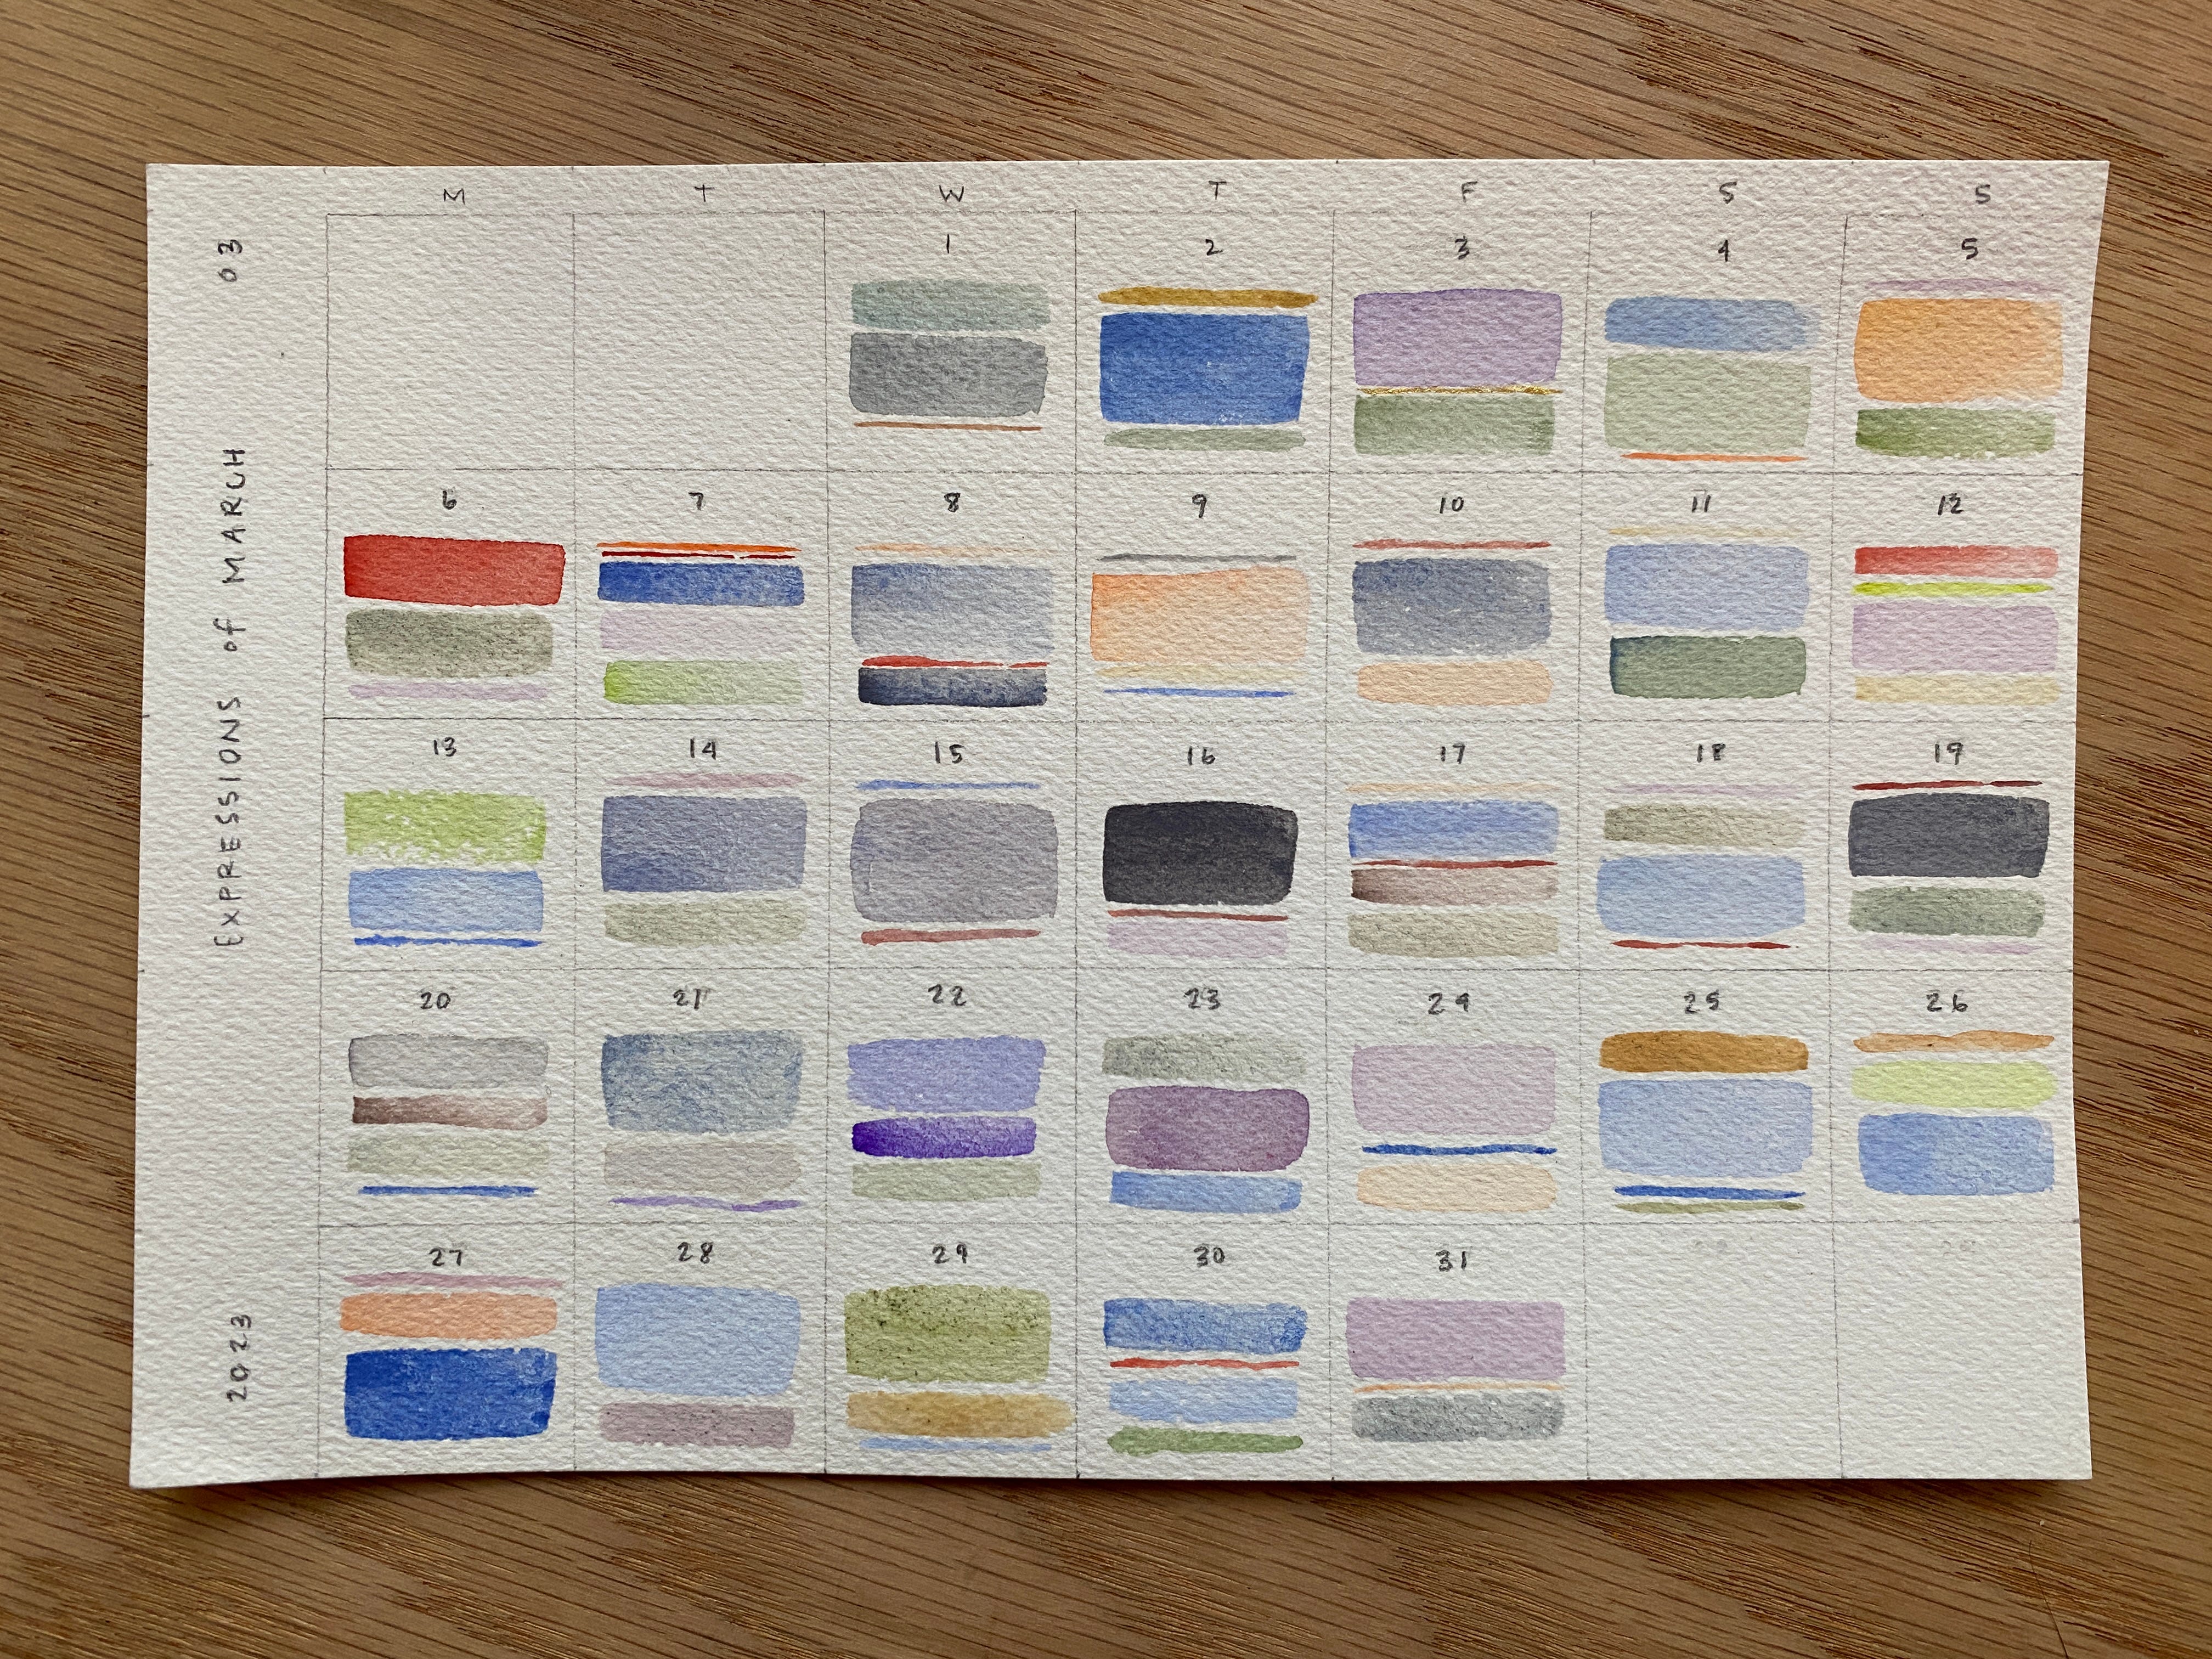 03
EXPRESSIONS of MARCH
2023
M T W T F S S
1 2 3 4 5
6 7 8 9 10 11 12
13 14 15 16 17 18 19
20 21 22 23 24 25 26
27 28 29 30 31